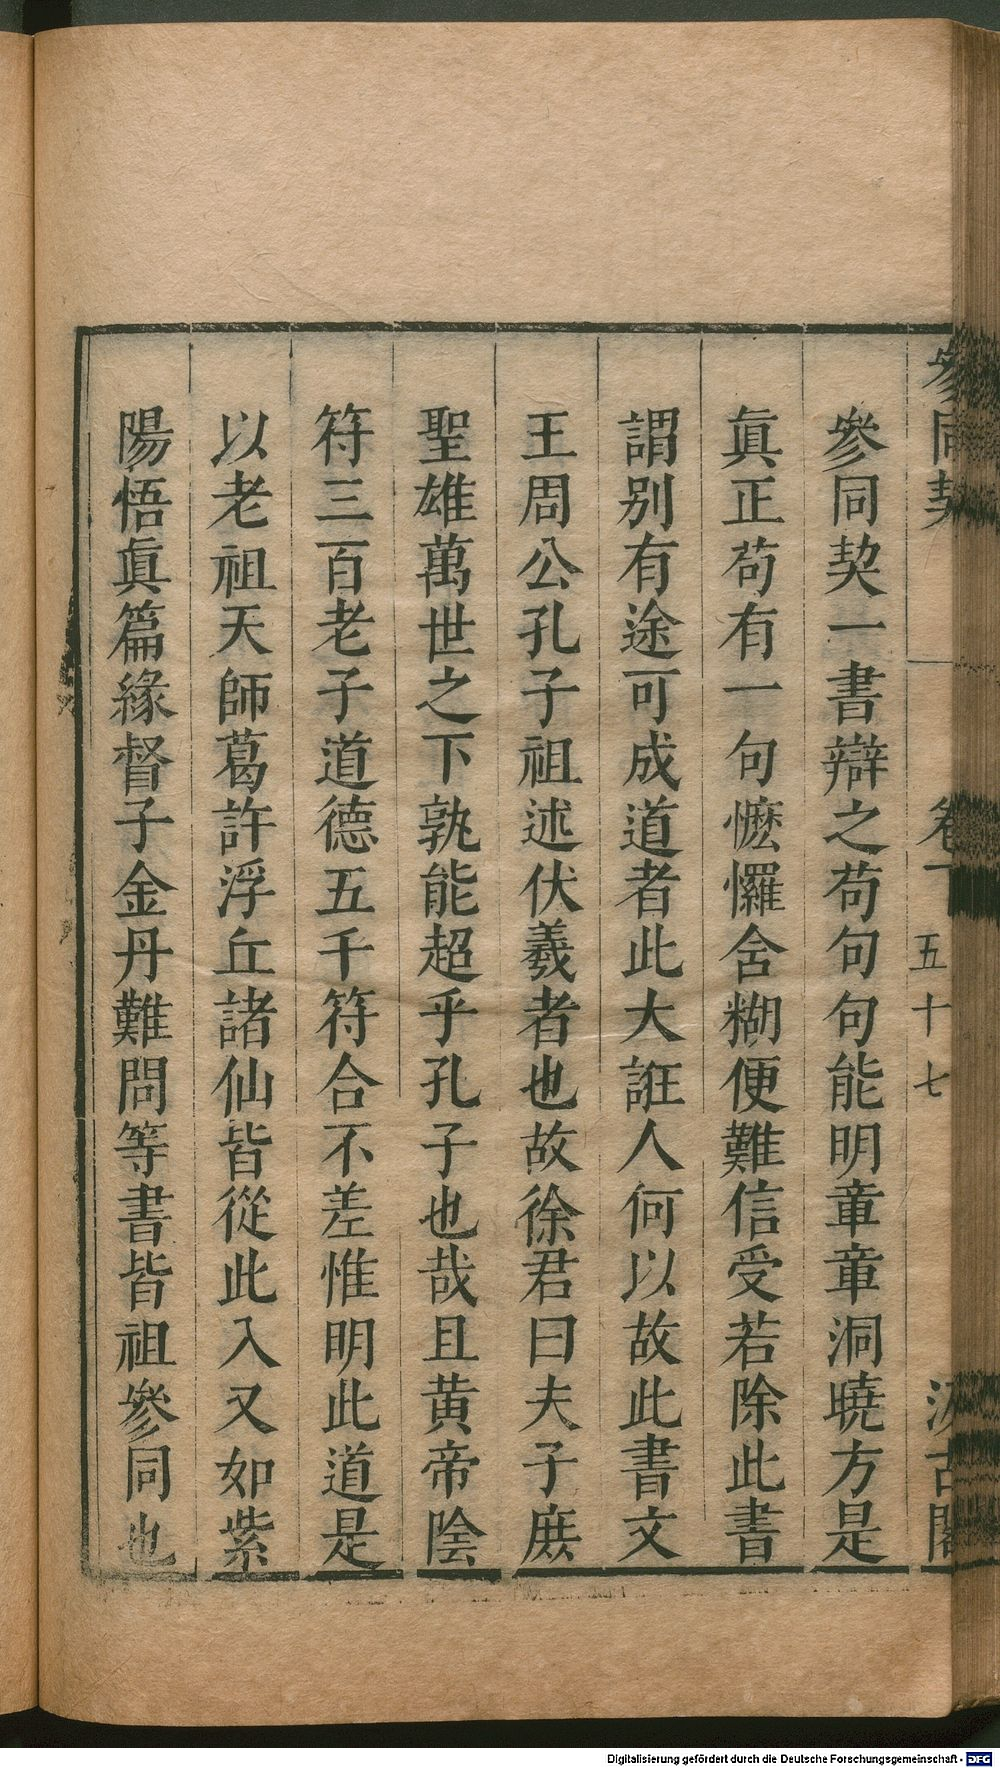 參同契 卷下 五十七 汲古閣
參同契一書辯之苟句句能明章章洞曉方是
眞正苟有一句㦄㦬含糊便難信受若除此書
謂别有途可成道者此大誑人何以故此書文
王周公孔子祖述伏羲者也故徐君曰夫子庶
聖雄萬世之下孰能超乎孔子也哉且黄帝陰
符三百老子道德五千符合不差惟明此道是
以老祖天師葛許浮丘諸仙皆從此入又如紫
陽悟眞篇緣督子金丹難問等書皆祖參同也
Digitalisierung gefördert durch die Deutsche Forschungsgemeinschaft - DFG